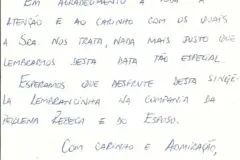 EM AGRADECIMENTO A TODA A
ATENÇÃO E AO CARINHO COM OS QUAIS
A SRA. NOS TRATA, NADA MAIS JUSTO QUE
LEMBRARMOS DESTA DATA TÃO ESPECIAL.
ESPERAMOS QUE DESFRUTE DESTA SINGE-
LA LEMBRANCINHA NA COMPANHIA DA
PEQUENA REBECA E DO ESPOSO.
COM CARINHO E ADMIRAÇÃO,